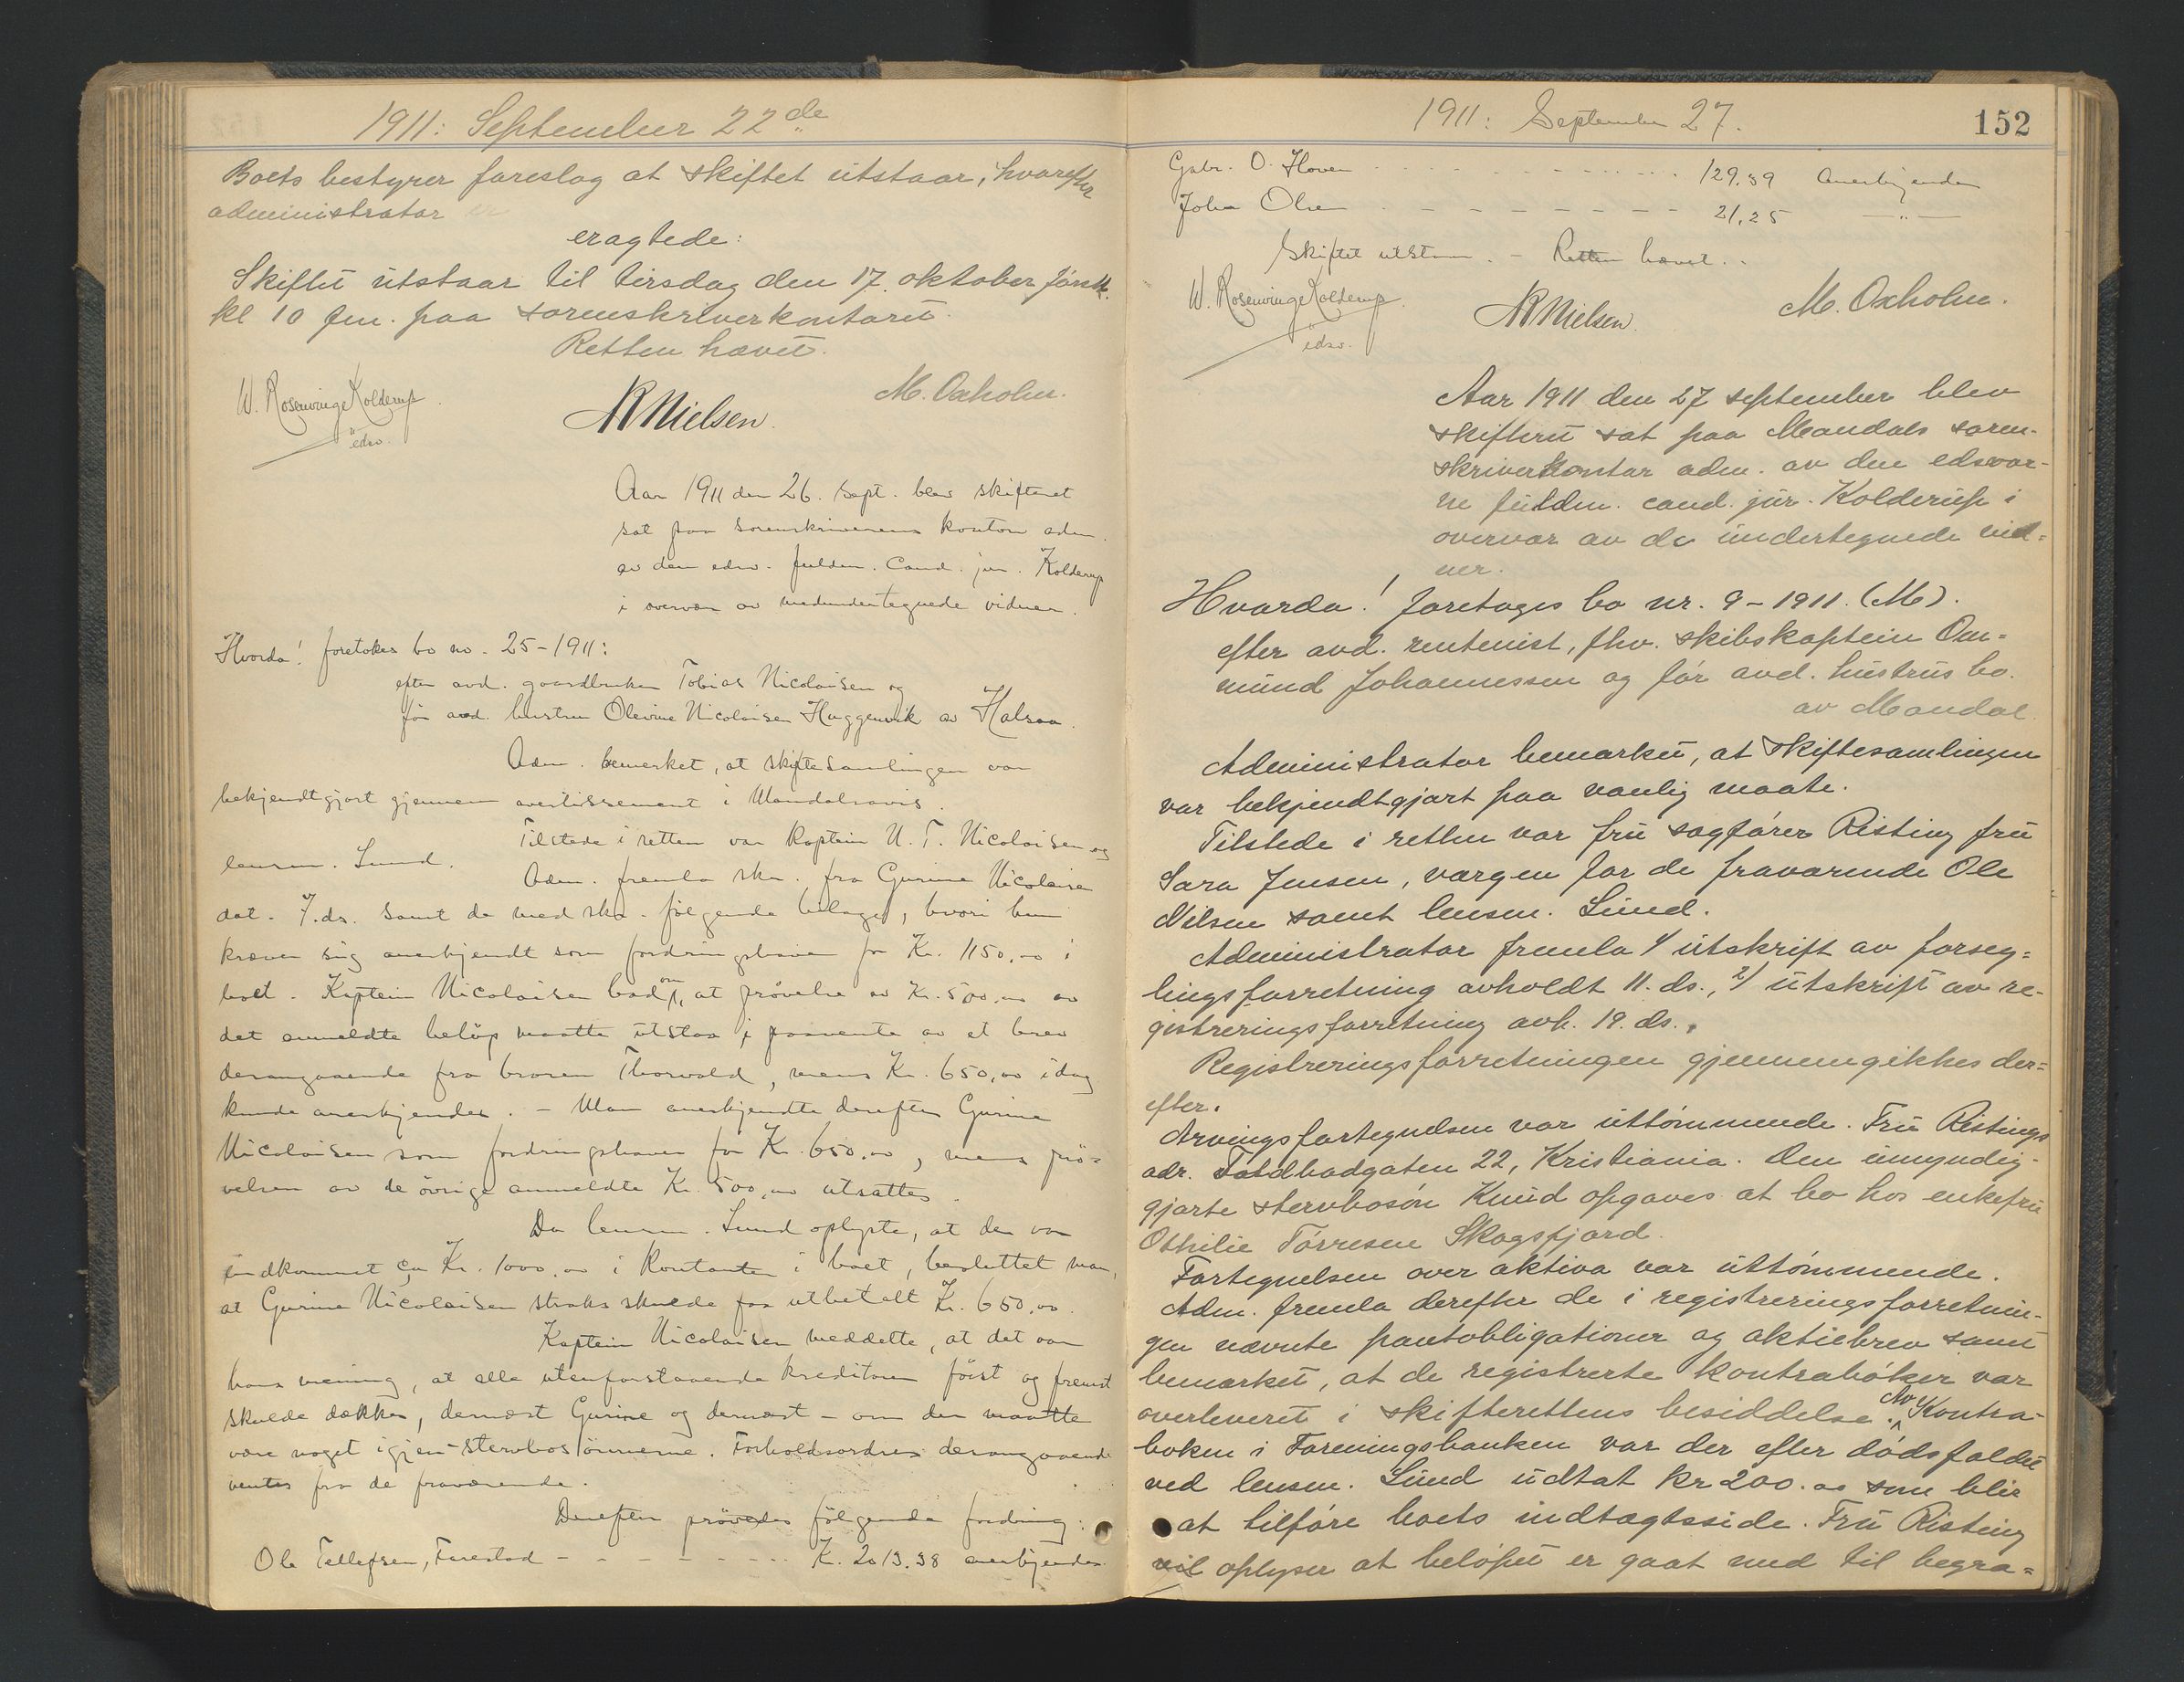 1911: September 22de
Boets bestyrer foreslog at skiftet utstaar, hvorefter
administrator
eragtede:
Skiftet utstaar til tirsdag den 17. oktober førstk.
kl 10 fm. paa sorenskriverkontoret.
Retten hævet.
W. Rosenvinge Kolderup
edsv.
NRNielsen.
M. Oxholm.
Aar 1911 den 26. sept. blev skifteret
sat paa sorenskriverens kontor adm.
av den edsv. fuldm. Cand. jur. Kolderup
i overvær av medundertegnede vidner.
Hvorda! foretokes bo no. 25-1911:
efter avd. gaardbruker Tobias Nicolaisen og
før avd. hustru Olevine Nicolaisen Huggenvik av Halsaa.
Adm. bemerket, at skiftesamlingen var
bekjendtgjort gjennem avertissement i Mandalsavis.
Tilstede i retten var kaptein N. T. Nicolaisen og
lensm. Lund.
Adm. fremla skr. fra Gurine Nicolaisen
dat. 7. ds. samt de med skr. følgende bilager, hvori hun
kræver sig anerkjendt som fordringshaver for Kr. 1150,00 i
boet. Kaptein Nicolaisen bad om, at prøvelse av Kr. 500,00 av
det anmeldte beløp maatte utstaa i paavente av et brev
derangaaende fra broren Thorvald, mens Kr. 650,00 idag
kunde anerkjendes. - Man anerkjendte derefter Gurine
Nicolaisen som fordringshaver for Kr. 650,00, mens prø=
velsen av de øvrige anmeldte Kr. 500,00 utsattes.
Da lensm. Lund oplyste, at der var
indkommet ca Kr. 1000,00 i kontanter i boet, besluttet man,
at Gurine Nicolaisen straks skulde faa utbetalt Kr. 650,00.
Kaptein Nicolaisen meddelte, at det var
hans mening, at alle utenforstaaende kreditorer først og fremst
skulde dækkes, dernæst Gurine og dernæst - om der maatte
være noget igjen - stervbosønnerne. Forholdsordres derangaaende
ventes fra de fraværende.
Derefter prøvedes følgende fordring:
Ole Tellefsen, Furestad - - - - - - - Kr. 2013.38 anerkjendes.
1911: September 27.
152
Gabr. O. Hoven - - - - - - - 129.39 Anerkjendes
Johan Olsen - - - - - - - 21,25 —"—
Skiftet utstaar. - Retten hævet.
W. Rosenvinge Kolderup.
edsv.
NRNielsen.
M. Oxholm.
Aar 1911 den 27 september blev
skifteret sat paa Mandals soren-
skriverkontor adm. av den edsvor-
ne fuldm. cand. jur. Kolderup i
overvær av de undertegnede vid=
ner.
Hvorda! foretoges bo nr. 9-1911. (M).
efter avd. rentenist, fhv. skibskaptein Om=
mund Johannessen og før avd. hustrus bo.
av Mandal.
Administrator bemærket, at skiftesamlingen
var bekjendtgjort paa vanlig maate.
Tilstede i retten var fru sagfører Risting fru
Sara Jensen, værgen for de fraværende Ole
Nilsen samt lensm. Lund.
Administrator fremla 1/ utskrift av forseg=
lingsforretning avholdt 11. ds., 2/ utskrift av re-
gistreringsforretning avh. 19. ds..
Registreringsforretningen gjennemgikkes der=
efter.
Arvingsfortegnelsen var uttømmende. Fru Ristings
adr. Toldbodgaten 22, Kristiania. Den umyndig-
gjorte stervbosøn Knud opgaves at bo hos enkefru
Othilie Tørresen Skogsfjord.
Fortegnelsen over aktiva var uttømmende.
Adm. fremla derefter de i registreringsforretnin-
gen nævnte pantobligationer og aktiebrev samt
bemærket, at de registrerte kontrabøker var
overleveret i skifterettens besiddelse. Av Kontra-
boken i Foreningsbanken var der efter dødsfaldet
ved lensm. Lund udtat kr 200.00 som blir
at tilføre boets indtægtsside. Fru Risting
vil oplyser at beløpet er gaat med til begra=